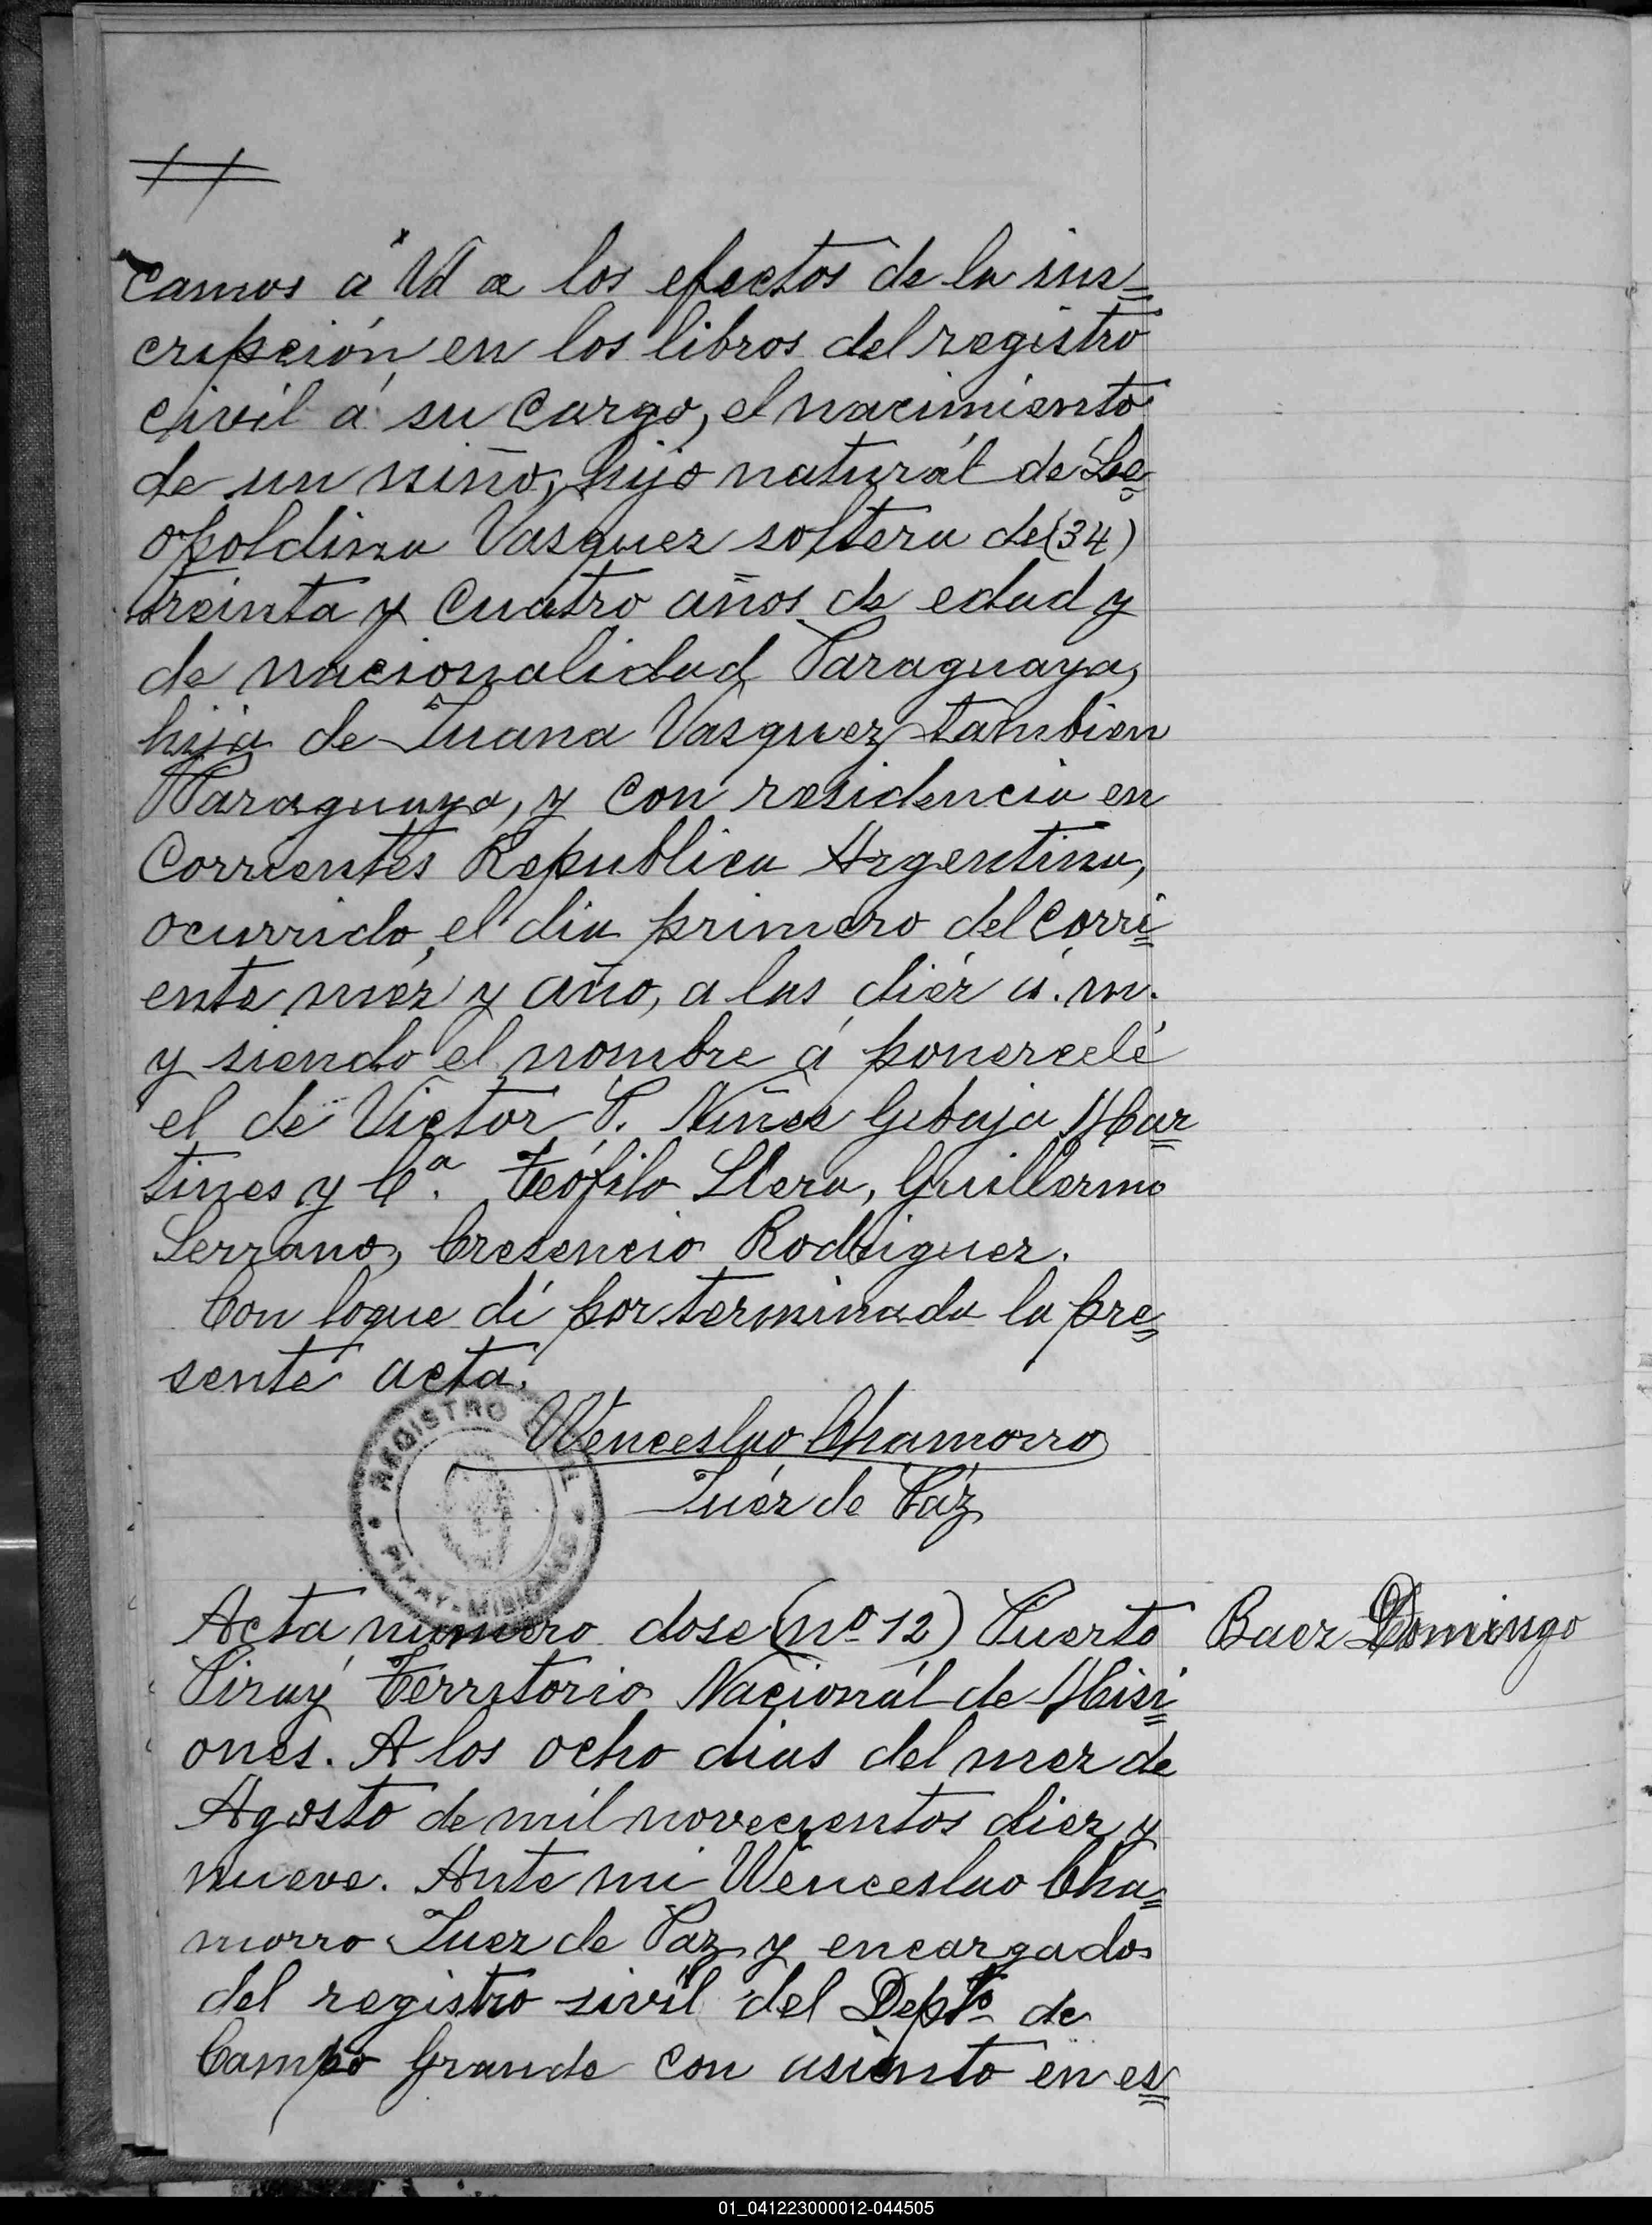 camos á Vd a los efectos de la ins=
cripción en los libros del registro
civil á su cargo, el nacimiento
de un niño, hijo naturál de Le=
opoldina Vasquez soltera de (34)
treinta y cuatro años de edad y
de nacionalidad Paraguaya,
hija de Juana Vasquez tambien
Paraguaya, y con residencia en
Corrientes Republica Argentina,
ocurrido el dia primero del corri=
ente méz y año, a las diéz á. m.
y siendo el nombre á ponercelé
el de Victor P. Niñes Gibaja Mar=
tines y Cª. Teófilo Llera, Guillermo
Serrano, Cresencio Rodriguez.
Con loque dí por terminada la pre=
sente acta.
Wenceslao Chamorro
Juéz de Páz
REGISTRO CIVIL
PIRAY - MISIONES
Acta número dose (nº 12) Puerto
Baez Domingo
Piray Territorio Nacionál de Misi=
ones. A los ocho dias del mez de
Agosto de mil novecientos diez y
nueve. Ante mi Wenceslao Cha=
morro Juez de Paz y encargados
del registro sivíl del Deptº de
Campo Grande con asiento en es=
01_041223000012-044505